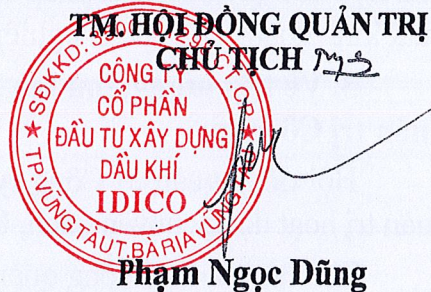 TM. HỘI ĐỒNG QUẢN TRỊ
CHỦ TỊCH
CÔNG TY
CỔ PHẦN
ĐẦU TƯ XÂY DỰNG
DẦU KHÍ
IDICO
TP.VŨNG TÀU T.BÀ RỊA VŨNG TÀU
Phạm Ngọc Dũng